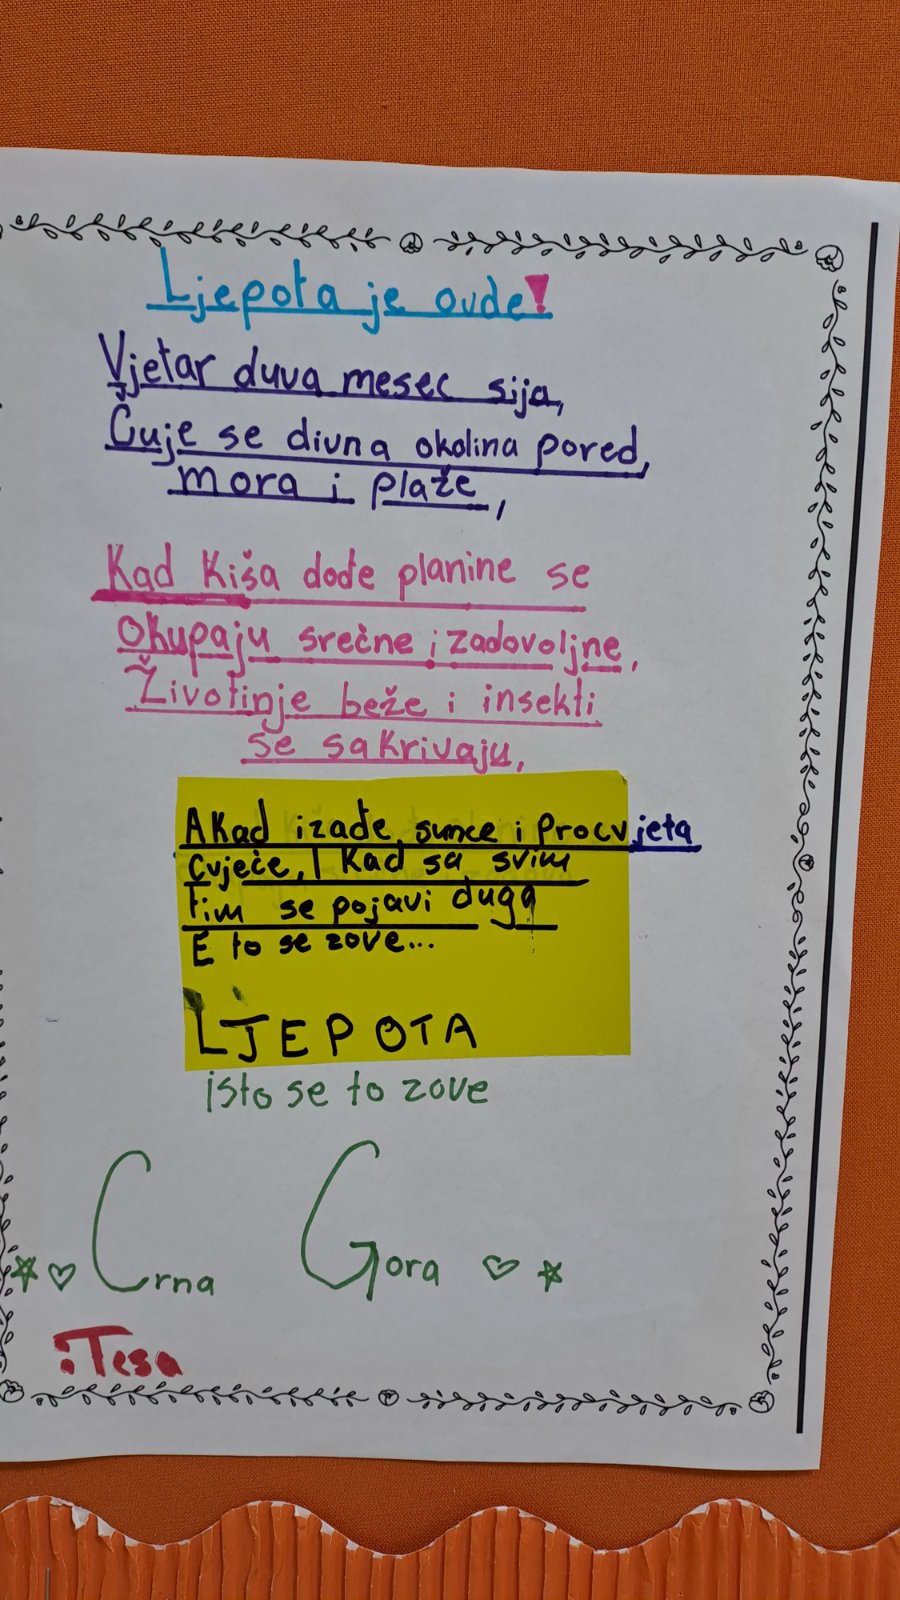 Ljepota je ovde!
Vjetar duva mesec sija,
Čuje se divna okolina pored,
mora i plaže,
Kad kiša dođe planine se
okupaju srećne i zadovoljne,
Životinje beže i insekti
se sakrivaju,
A kad izađe, sunce i procvjeta
cvjeće, I kad sa svim
tim se pojavi duga
E to se zove...
LJEPOTA
isto se to zove
Crna Gora
:Tesa